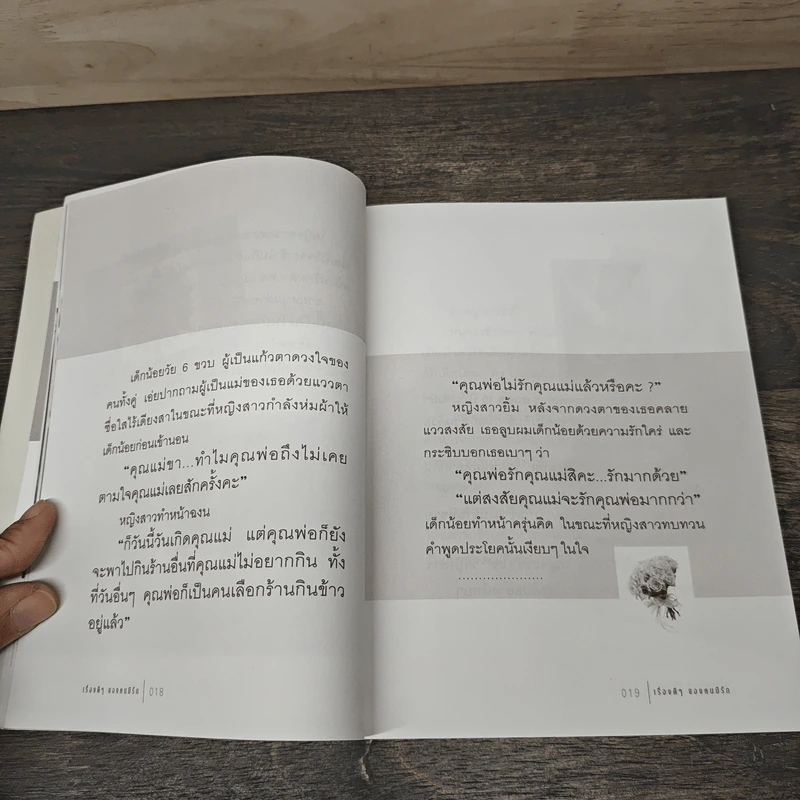 เด็กน้อยวัย 6 ขวบ ผู้เป็นแก้วตาดวงใจของ
คนทั้งคู่ เอ่ยปากถามผู้เป็นแม่ของเธอด้วยแววตา
ซื่อใสไร้เดียงสาในขณะที่หญิงสาวกำลังห่มผ้าให้
เด็กน้อยก่อนเข้านอน
“คุณแม่ขา...ทำไมคุณพ่อถึงไม่เคย
ตามใจคุณแม่เลยสักครั้งคะ”
หญิงสาวทำหน้าฉงน
“ก็วันนี้วันเกิดคุณแม่ แต่คุณพ่อก็ยัง
จะพาไปกินร้านอื่นที่คุณแม่ไม่อยากกิน ทั้ง
ที่วันอื่นๆ คุณพ่อก็เป็นคนเลือกร้านกินข้าว
อยู่แล้ว”
เรื่องดีๆ ของคนมีรัก 018
“คุณพ่อไม่รักคุณแม่แล้วหรือคะ ?”
หญิงสาวยิ้ม หลังจากดวงตาของเธอคลาย
แววสงสัย เธอลูบผมเด็กน้อยด้วยความรักใคร่ และ
กระซิบบอกเธอเบาๆ ว่า
“คุณพ่อรักคุณแม่สิคะ...รักมากด้วย”
“แต่สงสัยคุณแม่จะรักคุณพ่อมากกว่า”
เด็กน้อยทำหน้าครุ่นคิด ในขณะที่หญิงสาวทบทวน
คำพูดประโยคนั้นเงียบๆ ในใจ
.....................
019 เรื่องดีๆ ของคนมีรัก